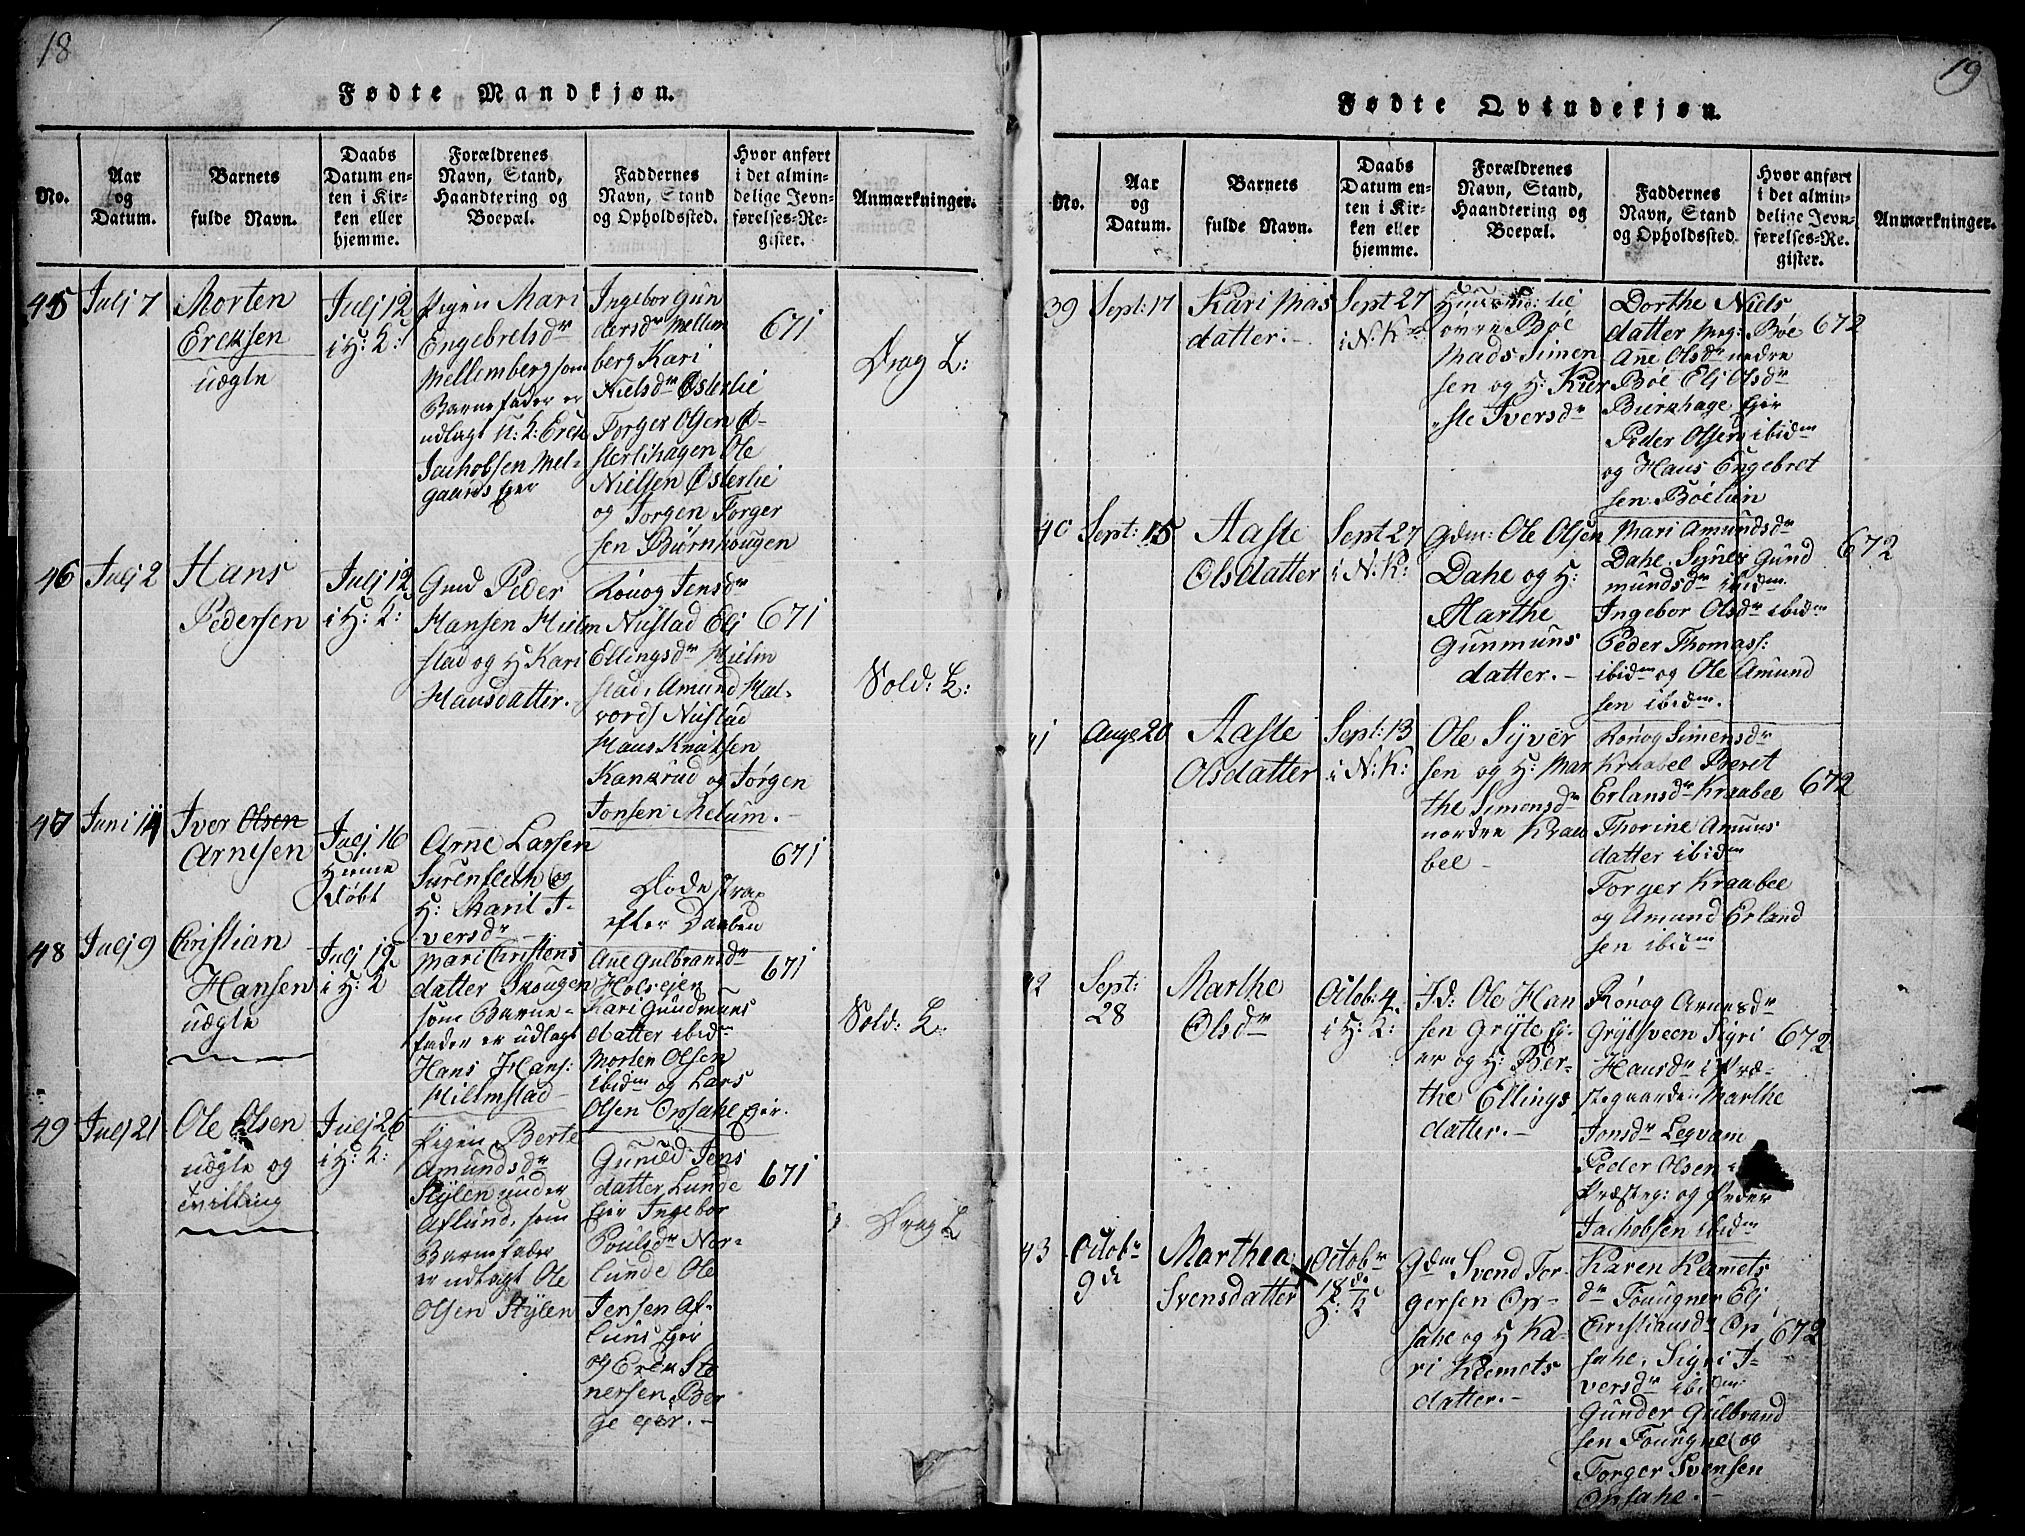 18
Fødte Mandkjøn.
No.
Aar
og
Datum.
Barnets
fulde Navn.
Daabs
Datum en-
ten i Kir-
ken eller
hjemme.
Forældrenes
Navn, Stand,
Haandtering og
Boepæl.
Faddernes
Navn, Stand
og Opholdssted.
Hvor anført
i det almin-
delige Jevn-
førelses-Re-
gister.
Anmærkninger.
45
Julj 7
Morten
Ercksen
uægte
Julj 12
i H: K:
Pigen Mari
Engebretsdr
Mellemberg som
Barnefader er
udlagt u: K: Erck
Jachobsen Mel-
gaards Eier
Ingebor Gun
dersdr Mellem
berg Kari
Nielsdr Østerlie
Torger Olsen Ø-
sterlihagen Ole
Nielsen Østerlie
og Jørgen Torger
sen Biørnhougen
671
Drag L:
46
Julj 2
Hans
Pedersen
Julj 12
i H: K:
Gmd Peder
Hansen Hielm
stad og H Kari
Hansdatter.
Rønog Jensdr
Nustad Elj
Ellingsdr Hielm
stad, Amund Hal-
vords Nustad
Hans Knutsen
Kankrud og Jørgen
Jonsen Melum.-
671
Sold: L:
47
Juni 14
Iver Olsen
Arnesen
Julj 16
Hieme
døbt
Arne Larsen
Surenflech og
H: Marit I-
versdr -
Døde strax
efter Daaben
671
48
Julj 9
Christian
Hansen
uægte
Julj 19
i H: K
Mari Christens
datter Skougen
som Barne-
fader er udlagt
Hans Hans:
Hillmstad
Ane Gulbransdr
Holsejer
Kari Gundmuns
datter ibidm
Morten Olsen
ibidm og Lars
Olsen Opsahl Eier.
671
Sold: L:
49
Julj 21
Ole Olsen
uægte og
tvilling
Julj 26
i H: K:
Pigen Berte
Amundsdr
Stylen under
Aflund, som
Barnefader
er udlagt Ole
Olsen Stylen
Guned Jens
datter Lunde
Eier Ingebor
Poulsdr Nor-
lunde Ole
Jensen Af-
luns Eier
og Erik Ste
nersen Ber
ge eier.-
671
Drag L
19
Fødte Qvindekjøn.
No.
Aar
og
Datum.
Barnets
fulde Navn.
Daabs
Datum en-
ten i Kir-
ken eller
hjemme.
Forældrenes
Navn, Stand,
Haandtering og
Boepæl.
Faddernes
Navn, Stand
og Opholdssted
Hvor anført
i det almin-
delige Jevn-
førelses-Re-
gister.
Anmærkninger.
39
Sept: 17
Kari Mas
datter.-
Sept 27
i N: K
øvre Bøe
Mads Simen
sen og H: Kier
ste Iversdr
Dorthe Niels
datter Bøe
Ane Olsdr nedre
Bøe Elj Olsdr
Birkhage Eier
Peder Olsen ibidm
og Hans Engebret
sen: Bøelien
672
40
Sept: 15
Aaste
Olsdatter
Sept 27
i N: K:
Gdm: Ole Olsen
Dahl og H:
Marthe
Gunmuns
datter.-
Mari Amundsdr
Dahl, Synes Gund
mundsdr ibidm
Ingebor Olsdr ibidm
Peder Thomass:
ibidm og Ole Amund
sen ibidm.
672
41
Augs 20
Aaste
Olsdatter
Sept: 13
i N: K:
Ole Syver
sen og H: Mar
the Simonsdr
nordre Kraa
bel -
Rønog Simensdr
Kraabel Beret
Erlansdr Kraabel
Thorine Amuns
datter ibidm
Torger Kraabel
og Amund Erland
sen ibidm
672
42
Sept:
28
Marthe
Olsdr
Octob: 4
i H: K:
Gd: Ole Han
sen Gryte Ei-
er og H: Ber-
the Ellings
datter.-
Rønog Arnesdr
Grytsveen Sigri
Hansdr i Præ-
stegaarde: Marthe
Jonsdr Legvam
Peder Olsen i
Præsteg: og Peder
Jachobsen ibidm
672
43
Octobr
9 de
Marthea
Svensdatter
Octobr
18 de
H: K
Gdm Svend Tor-
gersen Op-
sahl og H Ka-
ri Klemets
datter.-
Karen Klemets
dr Fougner Elj
Christiansdr Op
sahl, Sigri I-
versdr ibidm:
Gunder Gulbrand
sen Fougner og
Torger Svensen
Opsahl.-
672